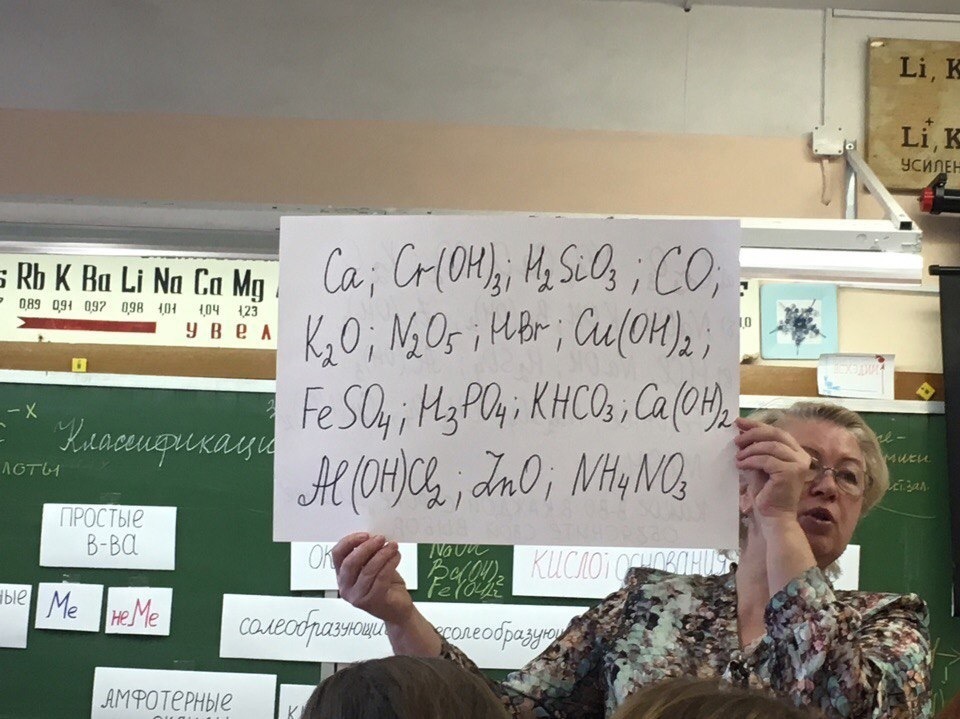 Li, K
Li, K
+
УСИЛЕН
Rb K Ba Li Na Ca Mg
0,89 0,91 0,97 0,98 1,01 1,04 1,23
УВЕЛ
Ca; Cr(OH)3; H2SiO3; CO;
K2O; N2O5; HBr; Cu(OH)2;
FeSO4; H3PO4; KHCO3; Ca(OH)2
Al(OH)Cl2; ZnO; NH4NO3
-х
Классификаци
лоты
ПРОСТЫЕ
В-ВА
Ме
неМе
ные
ОК
NaOH
Ba(OH)2
Fe(OH)2
КИСЛО
основания
солеобразующи
есолеобразую
АМФОТЕРНЫЕ